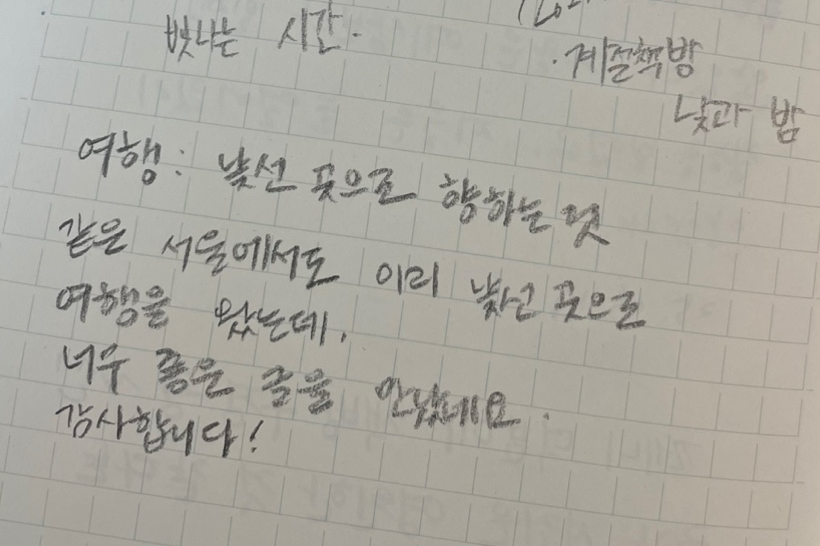 빛나는 시간.
·계절책방
낮과 밤
여행: 낯선 곳으로 향하는 것
같은 서울에서도 이리 낯선 곳으로
여행을 왔는데,
너무 좋은 글을 만났네요.
감사합니다!